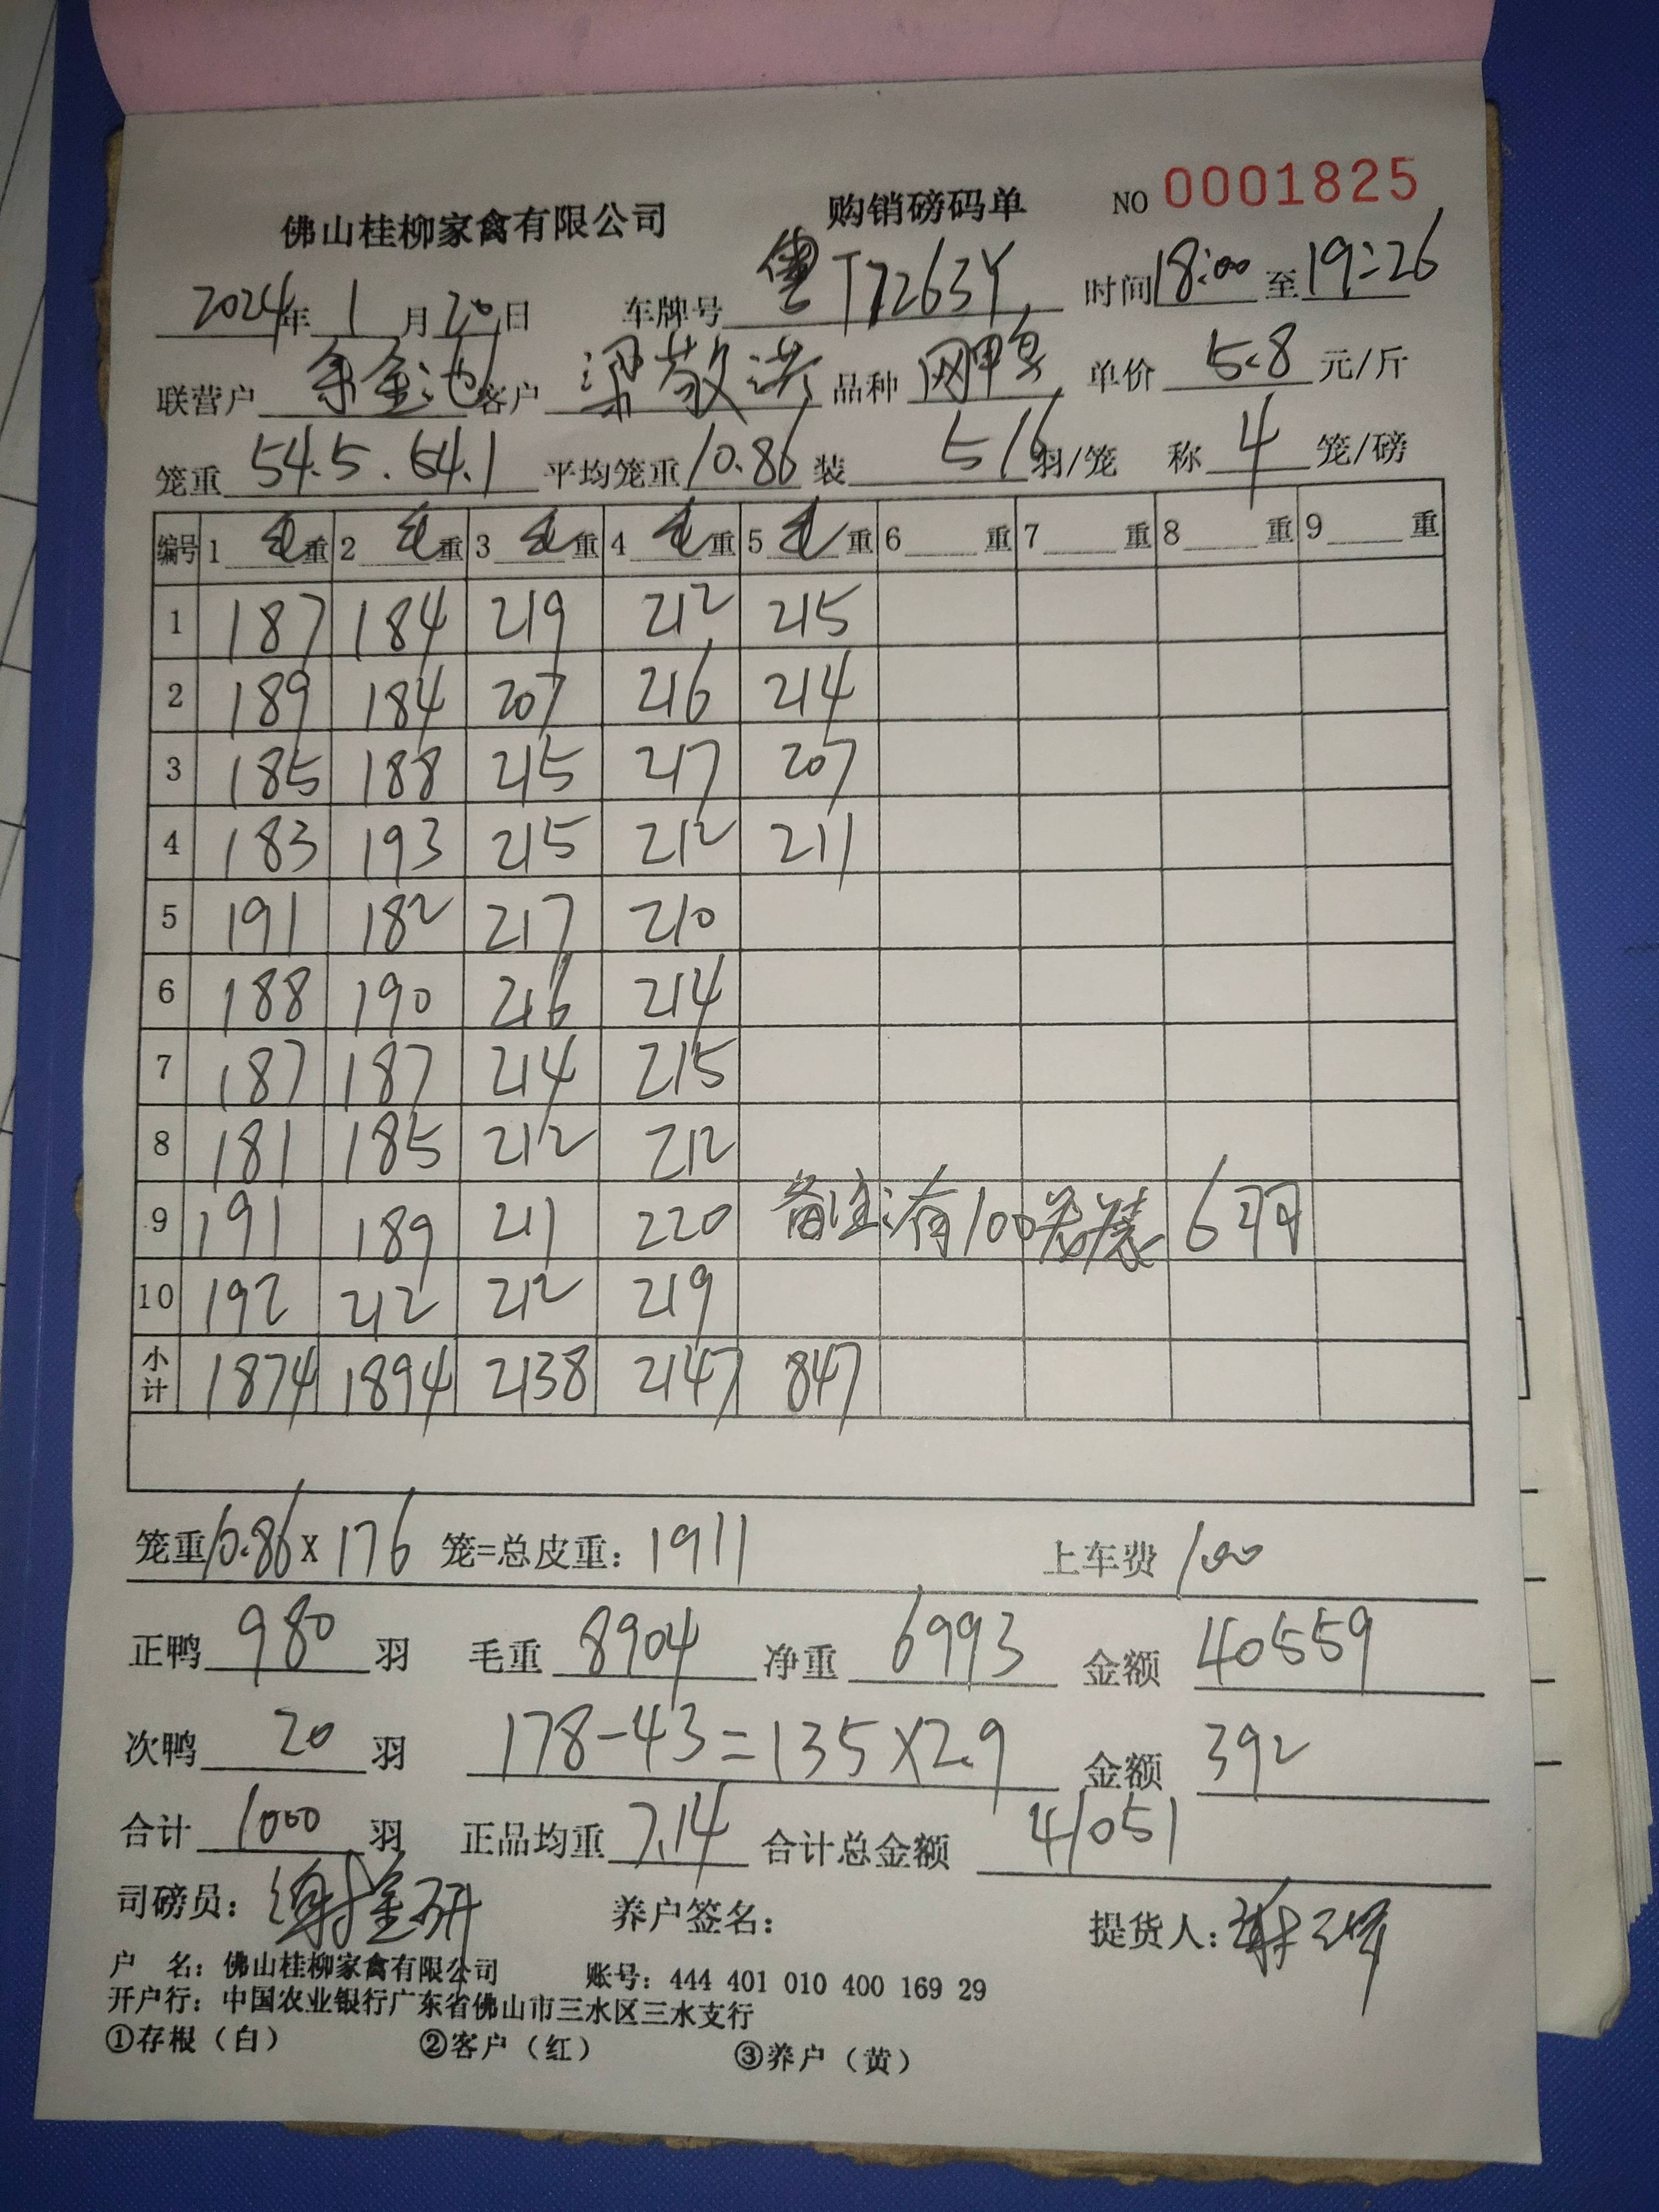 佛山桂柳家禽有限公司 购销磅码单 NO 0001825
2024年 1 月 20 日 车牌号 粤T7263Y 时间 18:00 至 19:26
联营户 余金池 客户 梁敬洪 品种 网甲鸟 单价 5.8 元/斤
笼重 54.5.64.1 平均笼重 10.86 装 5/6 羽/笼 称 4 笼/磅
编号 1 毛重 2 毛重 3 毛重 4 毛重 5 毛重 6 重 7 重 8 重 9 重
1 187 184 219 212 215
2 189 184 207 216 214
3 185 188 215 217 207
4 183 193 215 212 211
5 191 182 217 210
6 188 190 216 214
7 187 187 214 215
8 181 185 212 212
9 191 189 211 220 备注:有100笼装6羽
10 192 212 212 219
小计 1874 1894 2138 2147 847
笼重 10.86 X 176 笼=总皮重: 1911 上车费 100
正鸭 980 羽 毛重 8904 净重 6993 金额 40559
次鸭 20 羽 178-43=135×2.9 金额 392
合计 1000 羽 正品均重 7.14 合计总金额 41051
司磅员: 养户签名: 提货人:
户 名: 佛山桂柳家禽有限公司 账号: 444 401 010 400 169 29
开户行: 中国农业银行广东省佛山市三水区三水支行
①存根（白） ②客户（红） ③养户（黄）